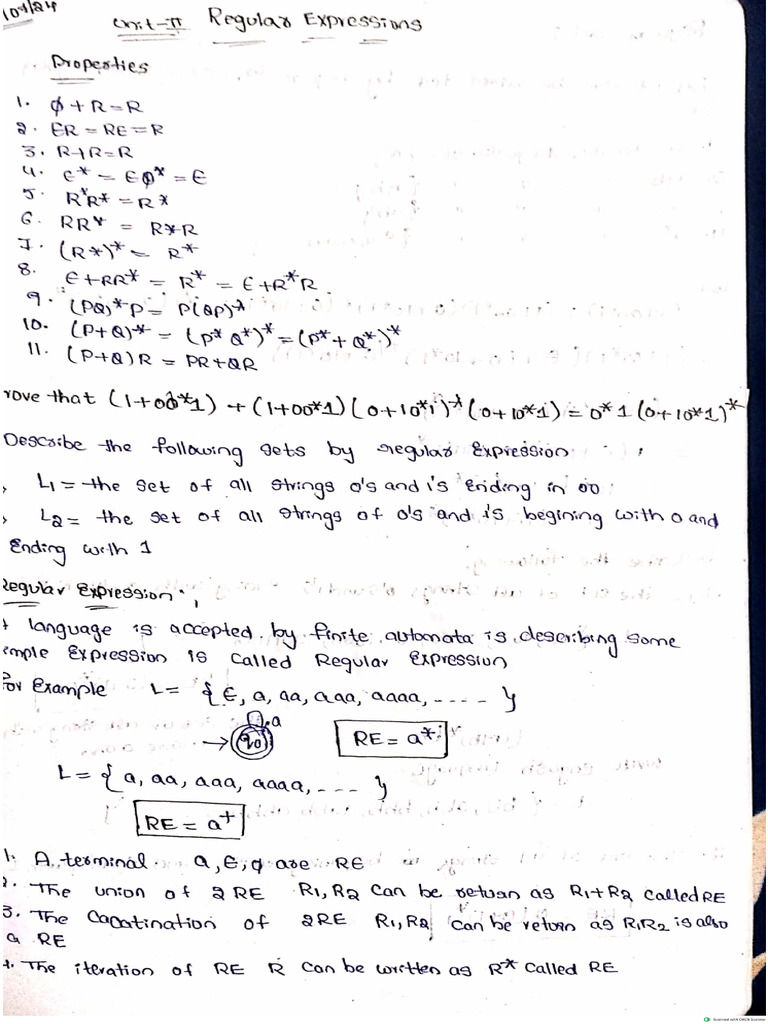 109/24
Unit-II Regular Expressions
Properties
1. ϕ + R = R
2. ER = RE = R
3. R+R=R
4. ∈* = ∈ϕ* = ∈
5. R*R* = R*
6. RR* = R*R
7. (R*)* = R*
8. ∈+RR* = R* = ∈+R*R
9. (PQ)*P = P(QP)*
10. (P+Q)* = (P*Q*)* = (P*+Q*)*
11. (P+Q)R = PR+QR
rove that (1+00*1) + (1+00*1)(0+10*1)*(0+10*1) = 0*1(0+10*1)*
Describe the following sets by regular Expression :
, L1 = the set of all strings 0's and 1's Ending in 00
, L2 = the set of all strings of 0's and 1's begining with 0 and
Ending with 1
Regular Expression :
language is accepted by finite automata is describing some
imple Expression is called Regular Expression
For Example L = {∈, a, aa, aaa, aaaa, ---- }
a
→ q0 RE = a*
L = {a, aa, aaa, aaaa, --- }
RE = a+
1. A terminal a, ∈, ϕ are RE
2. The union of 2 RE R1, R2 can be return as R1+R2 called RE
3. The Cocatination of 2RE R1, R2 can be return as R1R2 is also
a RE
4. The iteration of RE R can be written as R* called RE
Scanned with OKEN Scanner